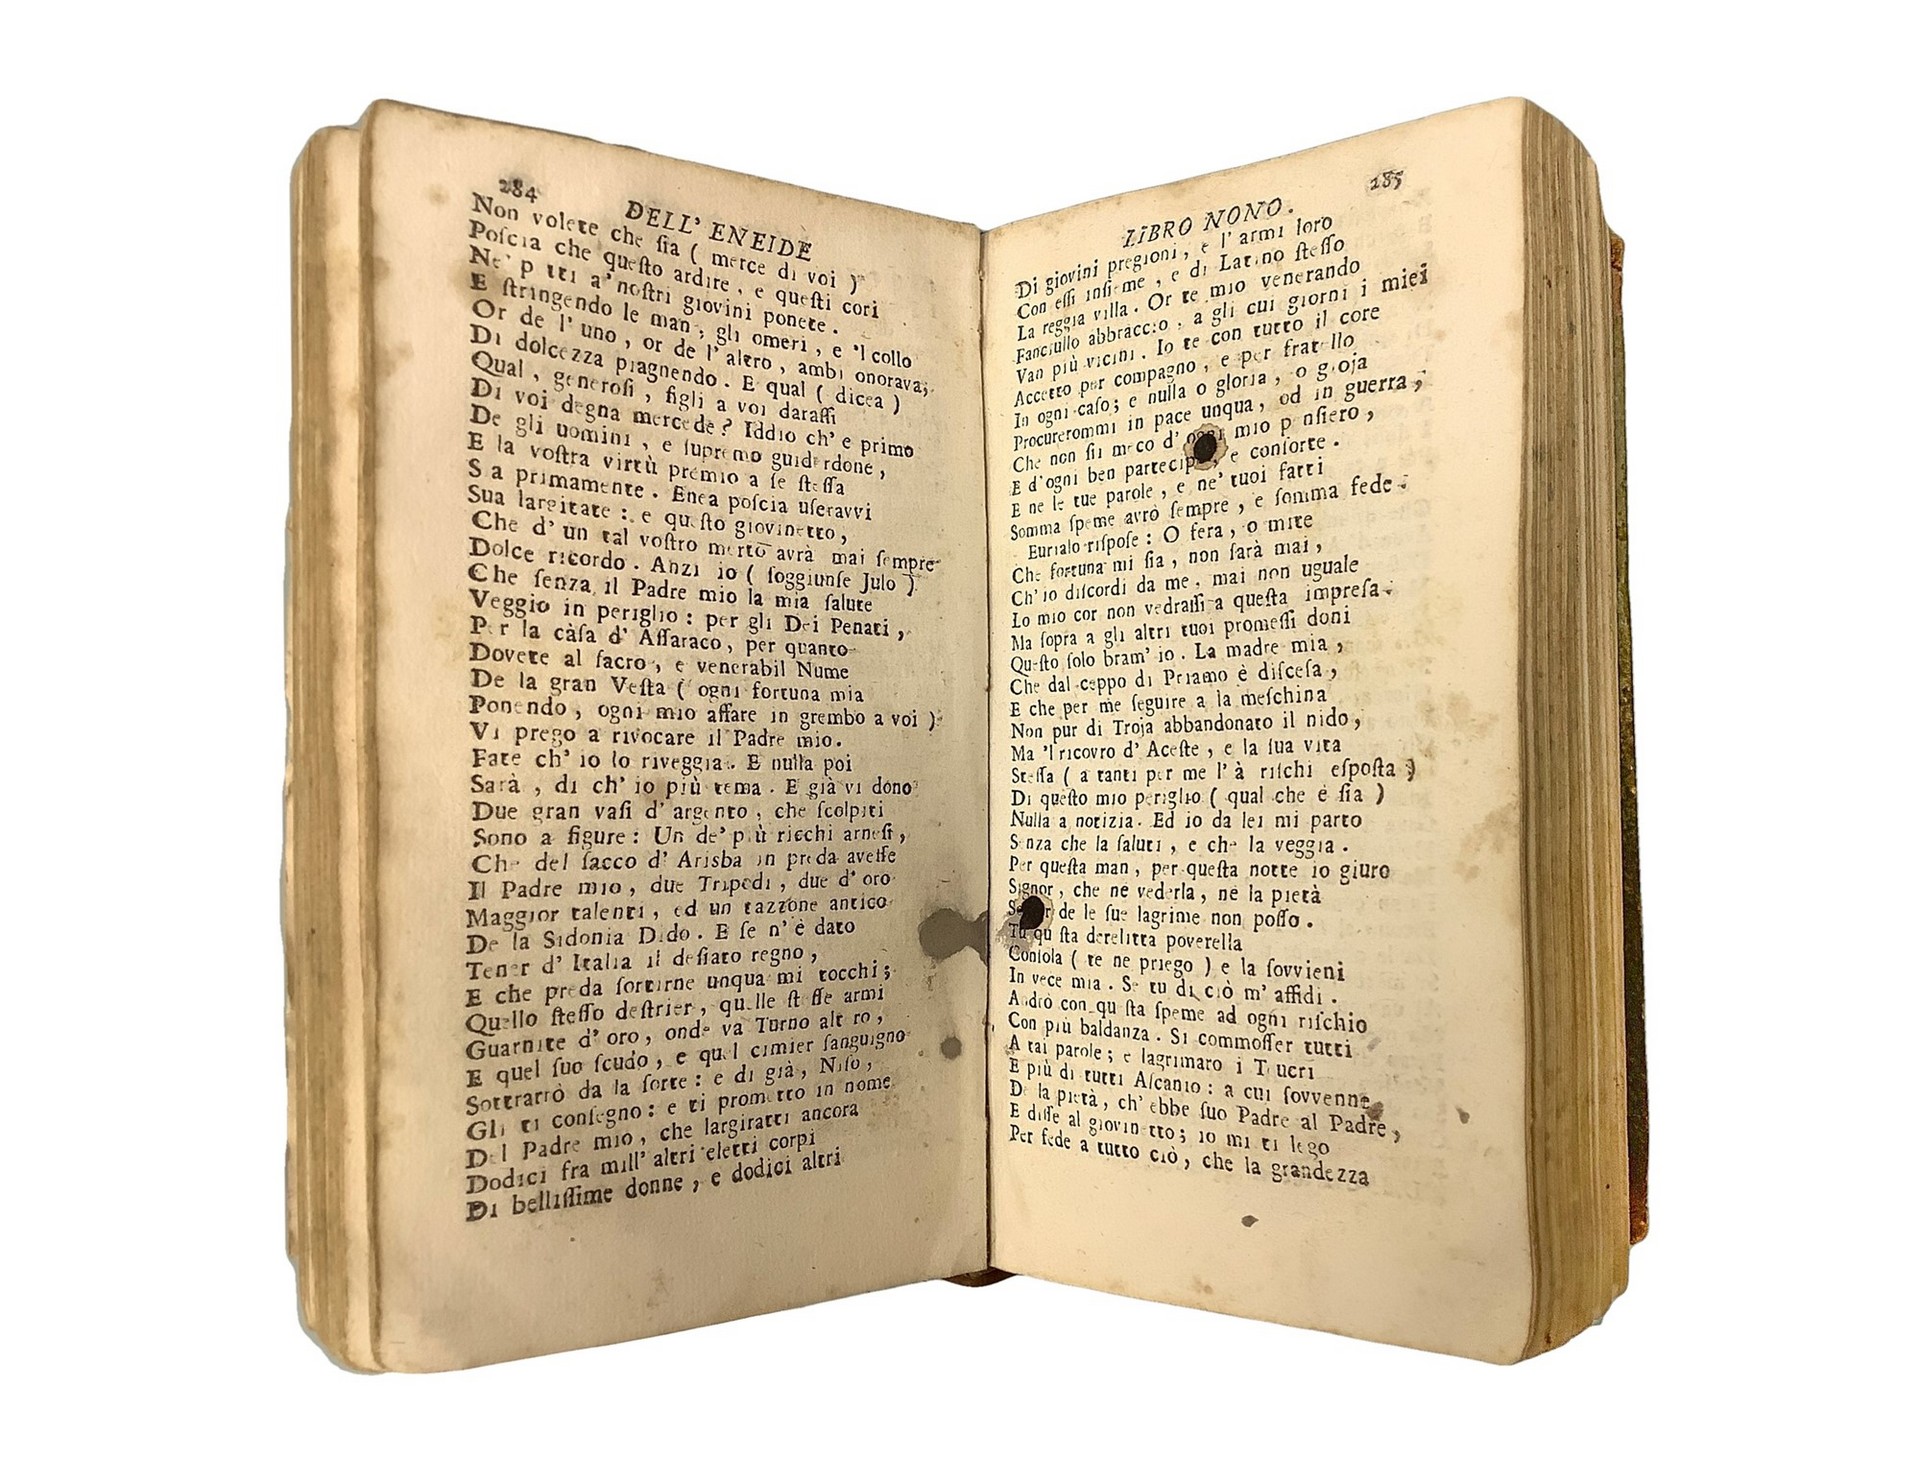 284
DELL' ENEIDE
Non volete che ſia ( merce di voi )
Poſcia che queſto ardire, e queſti cori
Ne' petti a' noſtri giovini ponete.
E ſtringendo le man, gli omeri, e 'l collo
Or de l' uno, or de l' altro, ambi onorava,
Di dolcezza piagnendo. E qual ( dicea )
Qual, generoſi, figli a voi daraſſi
Di voi degna mercede? Iddio ch' e primo
De gli uomini, e ſupremo guiderdone,
E la voſtra virtù premio a ſe ſteſſa
Sia primamente. Enea poſcia uſeravvi
Sua largitate: e queſto giovinetto,
Che d' un tal voſtro merto avrà mai ſempre
Dolce ricordo. Anzi io ( ſoggiunſe Julo )
Che ſenza il Padre mio la mia ſalute
Veggio in periglio: per gli Dei Penati,
Per la càſa d' Aſſaraco, per quanto
Dovete al ſacro, e venerabil Nume
De la gran Veſta ( ogni fortuna mia
Ponendo, ogni mio affare in grembo a voi )
Vi prego a rivocare il Padre mio.
Fate ch' io lo riveggia. E nulla poi
Sarà, di ch' io più tema. E già vi dono
Due gran vaſi d' argento, che ſcolpiti
Sono a figure: Un de' più ricchi arneſi,
Che del ſacco d' Arisba in preda aveſſe
Il Padre mio, due Tripodi, due d' oro
Maggior talenti, ed un tazzone antico
De la Sidonia Dido. E ſe n' è dato
Tener d' Italia il deſiato regno,
E che preda ſortirne unqua mi tocchi;
Quello ſteſſo deſtrier, quelle ſteſſe armi
Guarnite d' oro, onde va Turno altero,
E quel ſuo ſcudo, e quel cimier ſanguigno
Sottrarrò da la ſorte: e di già, Niſo,
Gli ti conſegno: e ti prometto in nome
Del Padre mio, che largiratti ancora
Dodici fra mill' altri eletti corpi
Di belliſſime donne, e dodici altri
285
LIBRO NONO.
Di giovini pregioni, e l' armi loro
Con eſſi inſieme, e di Latino ſteſſo
La reggia villa. Or te mio venerando
Fanciullo abbraccio, a gli cui giorni i miei
Van più vicini. Io te con tutto il core
Accetto per compagno, e per fratello
In ogni caſo; e nulla o gloria, o gioja
Procurerommi in pace unqua, od in guerra,
Che non ſii meco d' ogni mio penſiero,
E d'ogni ben partecipe, e conſorte.
E ne le tue parole, e ne' tuoi fatti
Somma ſpeme avrò ſempre, e ſomma fede.
Eurialo riſpoſe: O fera, o mite
Che fortuna mi ſia, non ſarà mai,
Ch' io diſcordi da me. mai non uguale
Lo mio cor non vedraſſi a queſta impreſa.
Ma ſopra a gli altri tuoi promeſſi doni
Queſto ſolo bram' io. La madre mia,
Che dal ceppo di Priamo è diſceſa,
E che per me ſeguire a la meſchina
Non pur di Troja abbandonato il nido,
Ma 'l ricovro d' Aceſte, e la ſua vita
Steſſa ( a tanti per me l' à riſchi eſpoſta )
Di queſto mio periglio ( qual che e ſia )
Nulla a notizia. Ed io da lei mi parto
Senza che la ſaluti, e che la veggia.
Per queſta man, per queſta notte io giuro
Signor, che nè vederla, nè la pietà
de le ſue lagrime non poſſo.
Tu queſta derelitta poverella
Conſola ( te ne priego ) e la ſovvieni
In vece mia. Se tu di ciò m' affidi.
Andrò con queſta ſpeme ad ogni riſchio
Con più baldanza. Si commoſſer tutti
A tai parole; e lagrimaro i Teucri
E più di tutti Aſcanio: a cui ſovvenne
De la pietà, ch' ebbe ſuo Padre al Padre,
E diſſe al giovinetto; io mi ti lego
Per fede a tutto ciò, che la grandezza